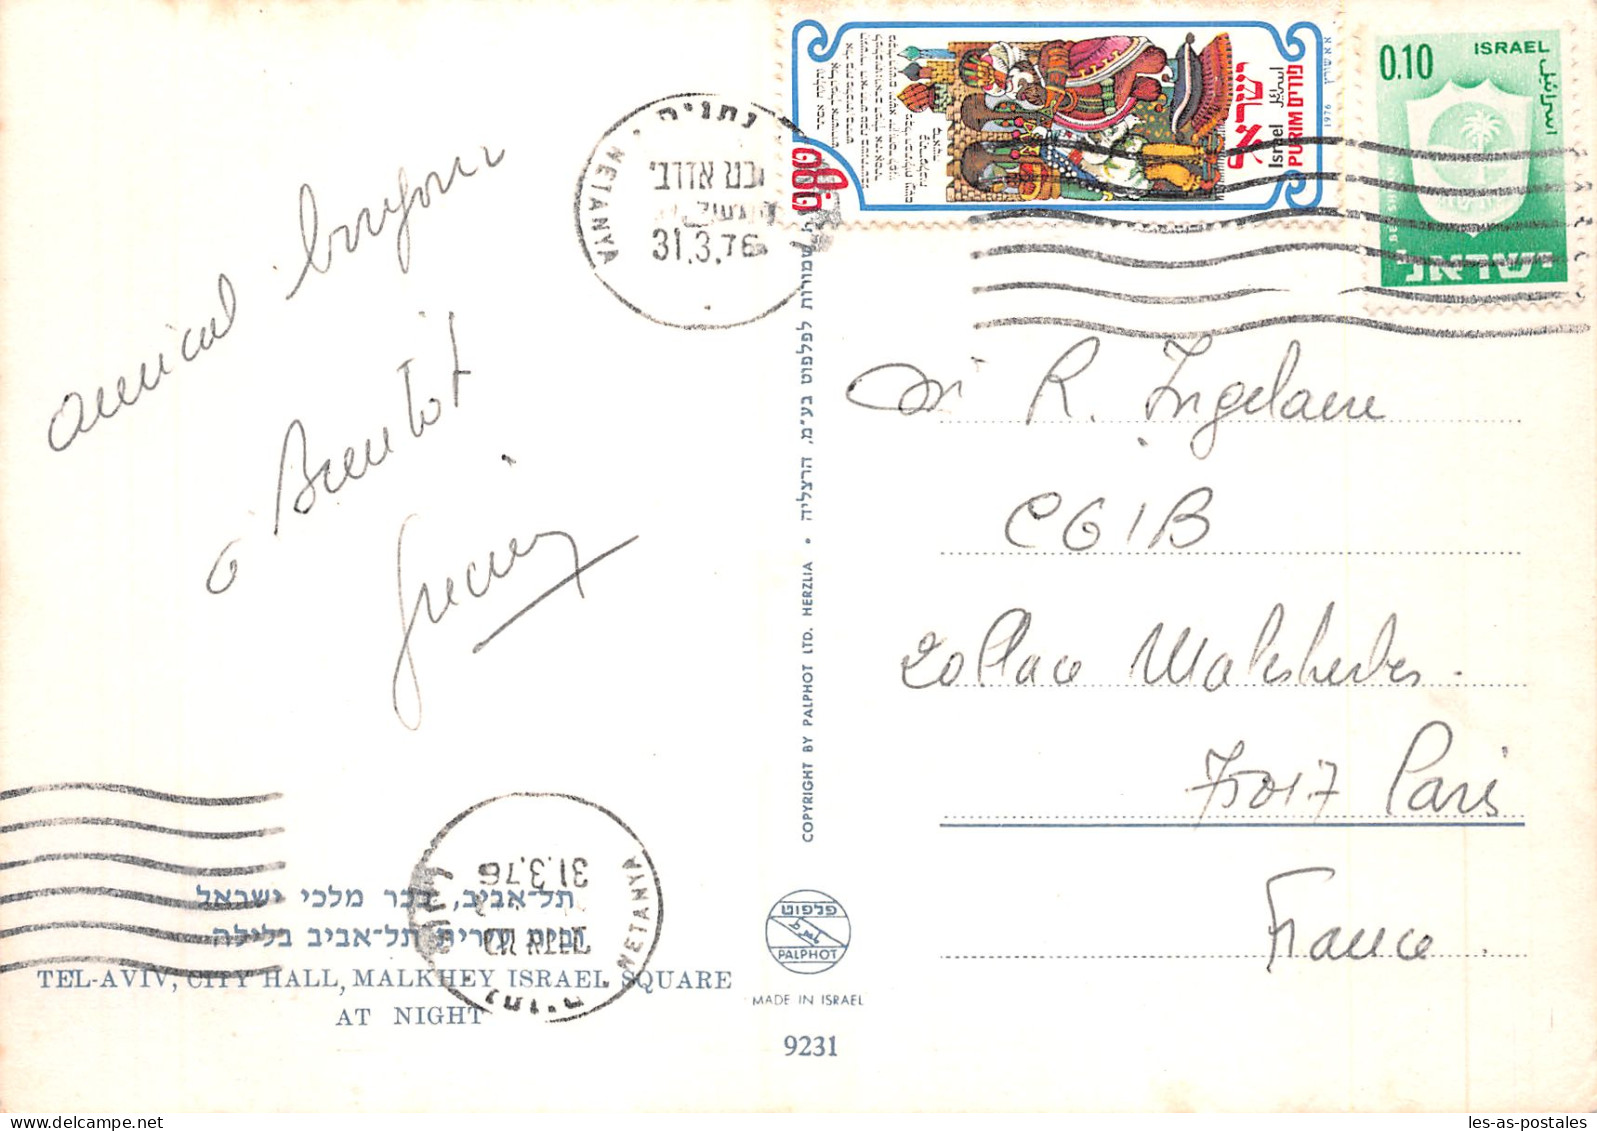 amical bonjour
a Bientôt
נתניה
NETANYA
31.3.76
ישראל
Israel
اسرائيل
PURIM פורים
0.80
1976
0.10 ISRAEL
اسرائيل
ישראל
M R. Ingelaere
CGIB
20 Place Malesherbes.
75017 Paris
France.
תל-אביב, ככר מלכי ישראל
ובית עירית תל-אביב בלילה
TEL-AVIV, CITY HALL, MALKHEY ISRAEL SQUARE
AT NIGHT
31.3.76
NETANYA
נתניה
COPYRIGHT BY PALPHOT LTD. HERZLIA • שמורות לפלפוט בע״מ, הרצליה
פלפוט
PALPHOT
MADE IN ISRAEL
9231
les-as-postales
delcampe.net